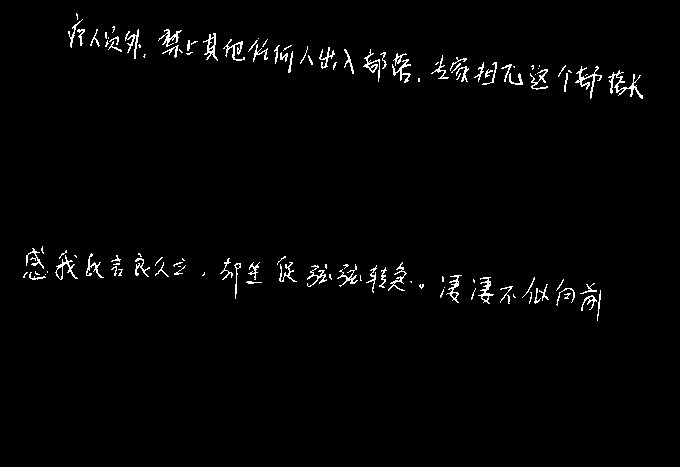 疗人员外,禁止其他任何人出入部落,专家担冗这个部落长
感我此言良久立,却坐促弦弦转急。凄凄不似向前